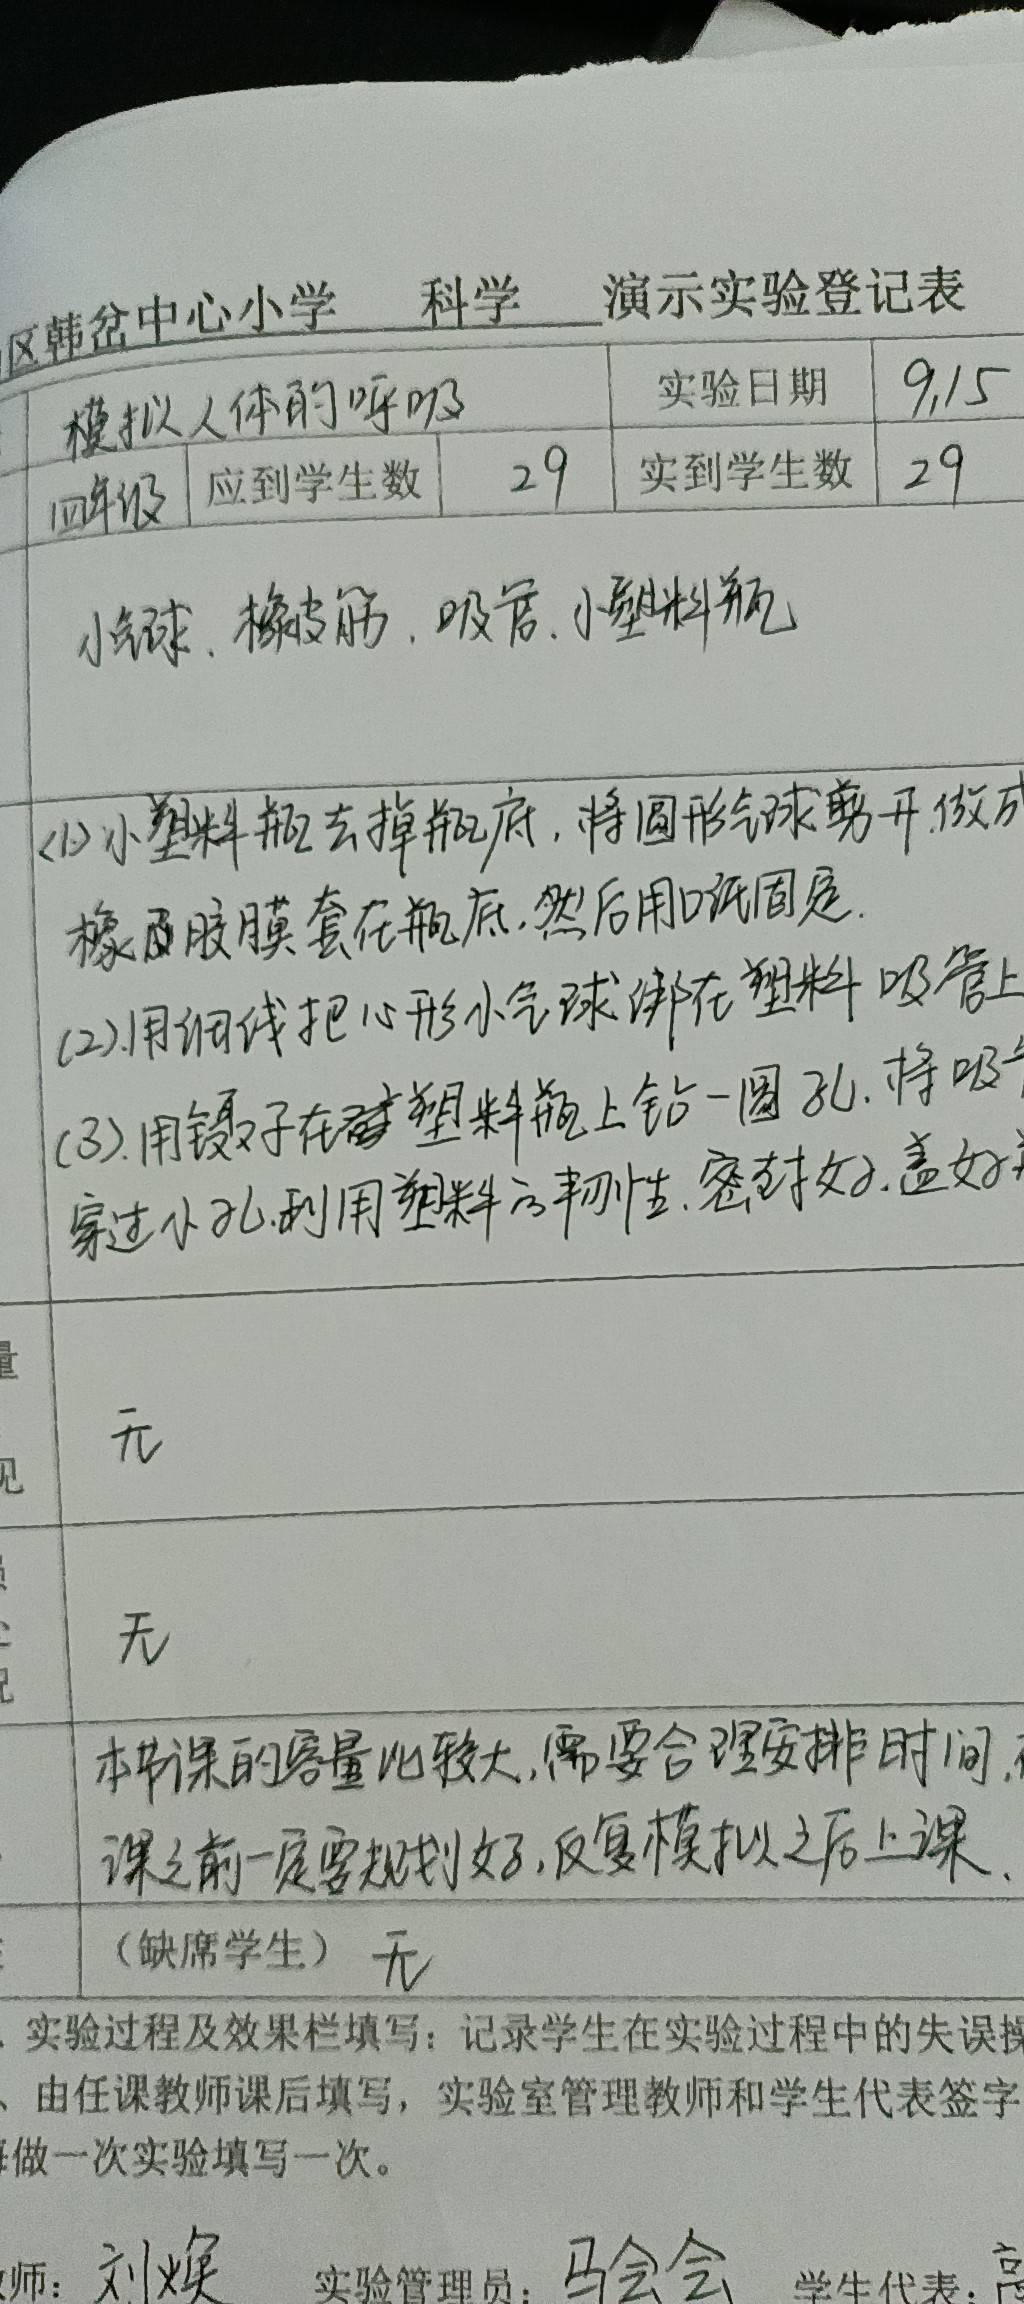 区韩岔中心小学 科学 演示实验登记表
模拟人体的呼吸 实验日期 9.15
四年级 应到学生数 29 实到学生数 29
小气球、橡皮筋、吸管、小塑料瓶
(1)小塑料瓶去掉瓶底,将圆形气球剪开,做成
橡皮胶膜套在瓶底,然后用口纸固定.
(2).用细线把心形小气球绑在塑料吸管上
(3).用镊子在塑料瓶上钻一圆孔.将吸
穿过小孔.利用塑料的韧性.密封好.盖好
量
无
见
无
况
本节课的容量比较大,需要合理安排时间,
课之前一定要规划好,反复模拟之后上课.
(缺席学生) 无
、实验过程及效果栏填写:记录学生在实验过程中的失误操
、由任课教师课后填写,实验室管理教师和学生代表签字
每做一次实验填写一次。
师: 刘焕 实验管理员: 马会会 学生代表: 高